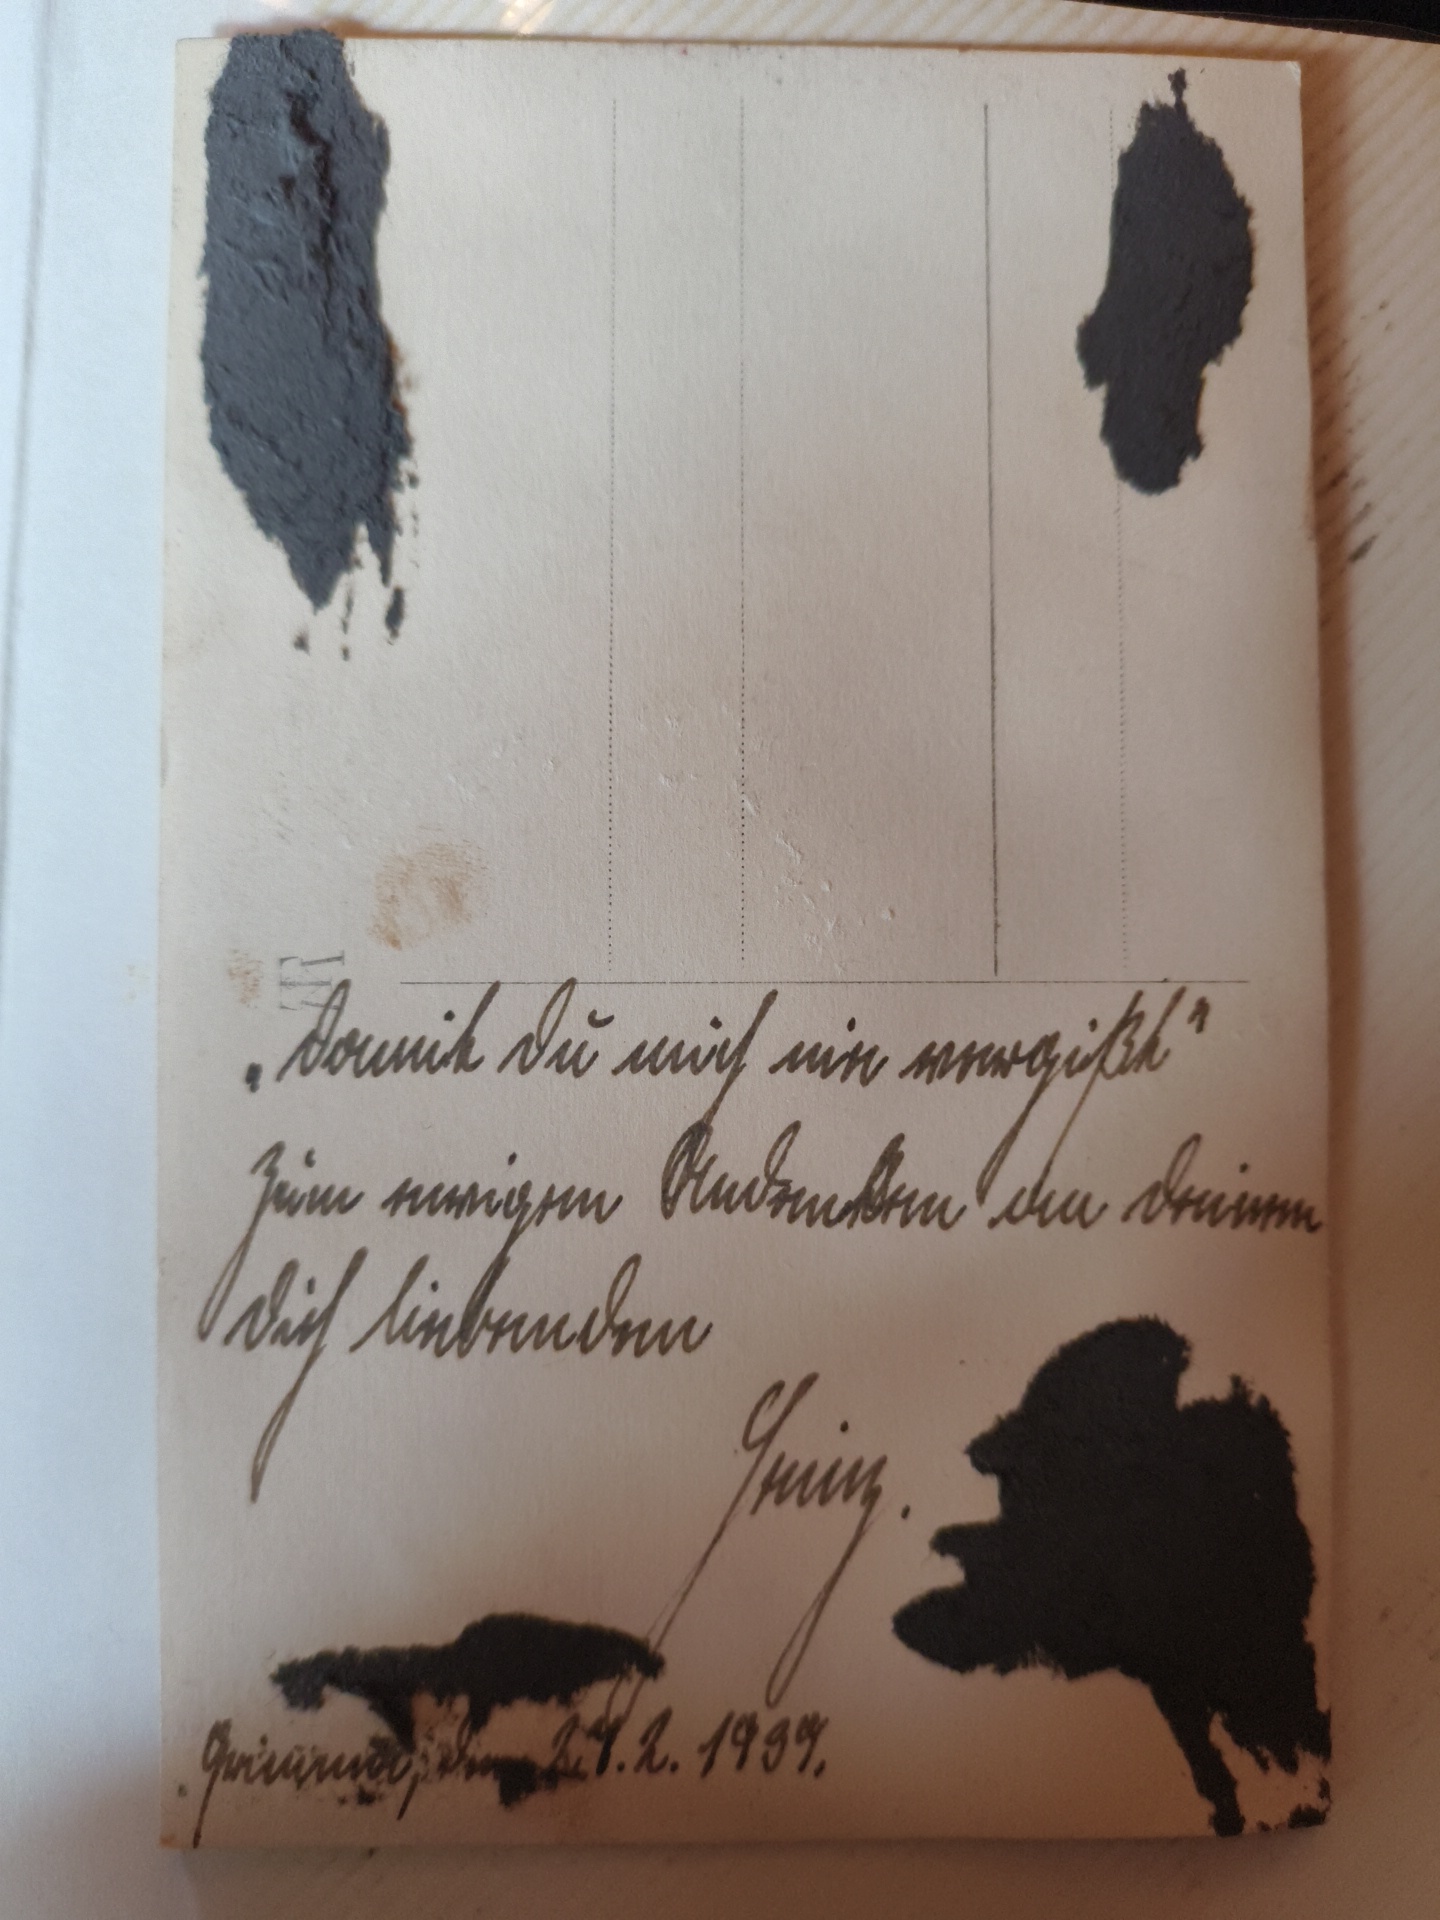 „Damit Du mich nie vergißt"
Zum ewigen Andenken an deinen
Dich liebenden
Heinz.
den 27.2.1939.